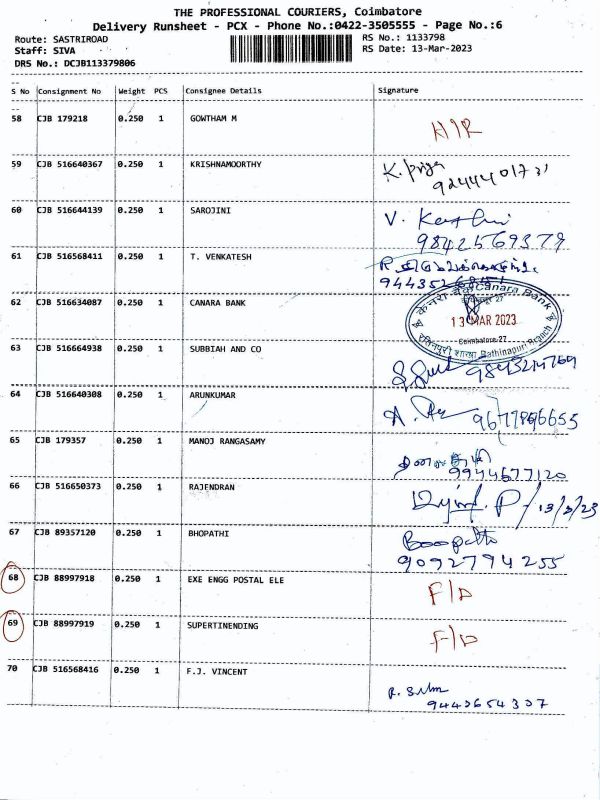 THE PROFESSIONAL COURIERS, Coimbatore
Delivery Runsheet - PCX - Phone No.:0422-3505555 - Page No.:6
Route: SASTRIROAD RS No.: 1133798
Staff: SIVA RS Date: 13-Mar-2023
DRS No.: DCJB113379806
S No Consignment No Weight PCS Consignee Details Signature
58 CJB 179218 0.250 1 GOWTHAM M
59 CJB 516640367 0.250 1 KRISHNAMOORTHY K. Priya
60 CJB 516644139 0.250 1 SAROJINI V.
9842569379
61 CJB 516568411 0.250 1 T. VENKATESH
62 CJB 516634087 0.250 1 CANARA BANK
केनरा बैंक Canara Bank
13 MAR 2023
Coimbatore/27
शाखा Rathinapuri Branch
63 CJB 516664938 0.250 1 SUBBIAH AND CO
64 CJB 516640308 0.250 1 ARUNKUMAR
65 CJB 179357 0.250 1 MANOJ RANGASAMY
9944677120
66 CJB 516650373 0.250 1 RAJENDRAN 13/3/23
67 CJB 89357120 0.250 1 BHOPATHI Boopathi
9092794255
68 CJB 88997918 0.250 1 EXE ENGG POSTAL ELE F/D
69 CJB 88997919 0.250 1 SUPERTINENDING F/D
70 CJB 516568416 0.250 1 F.J. VINCENT